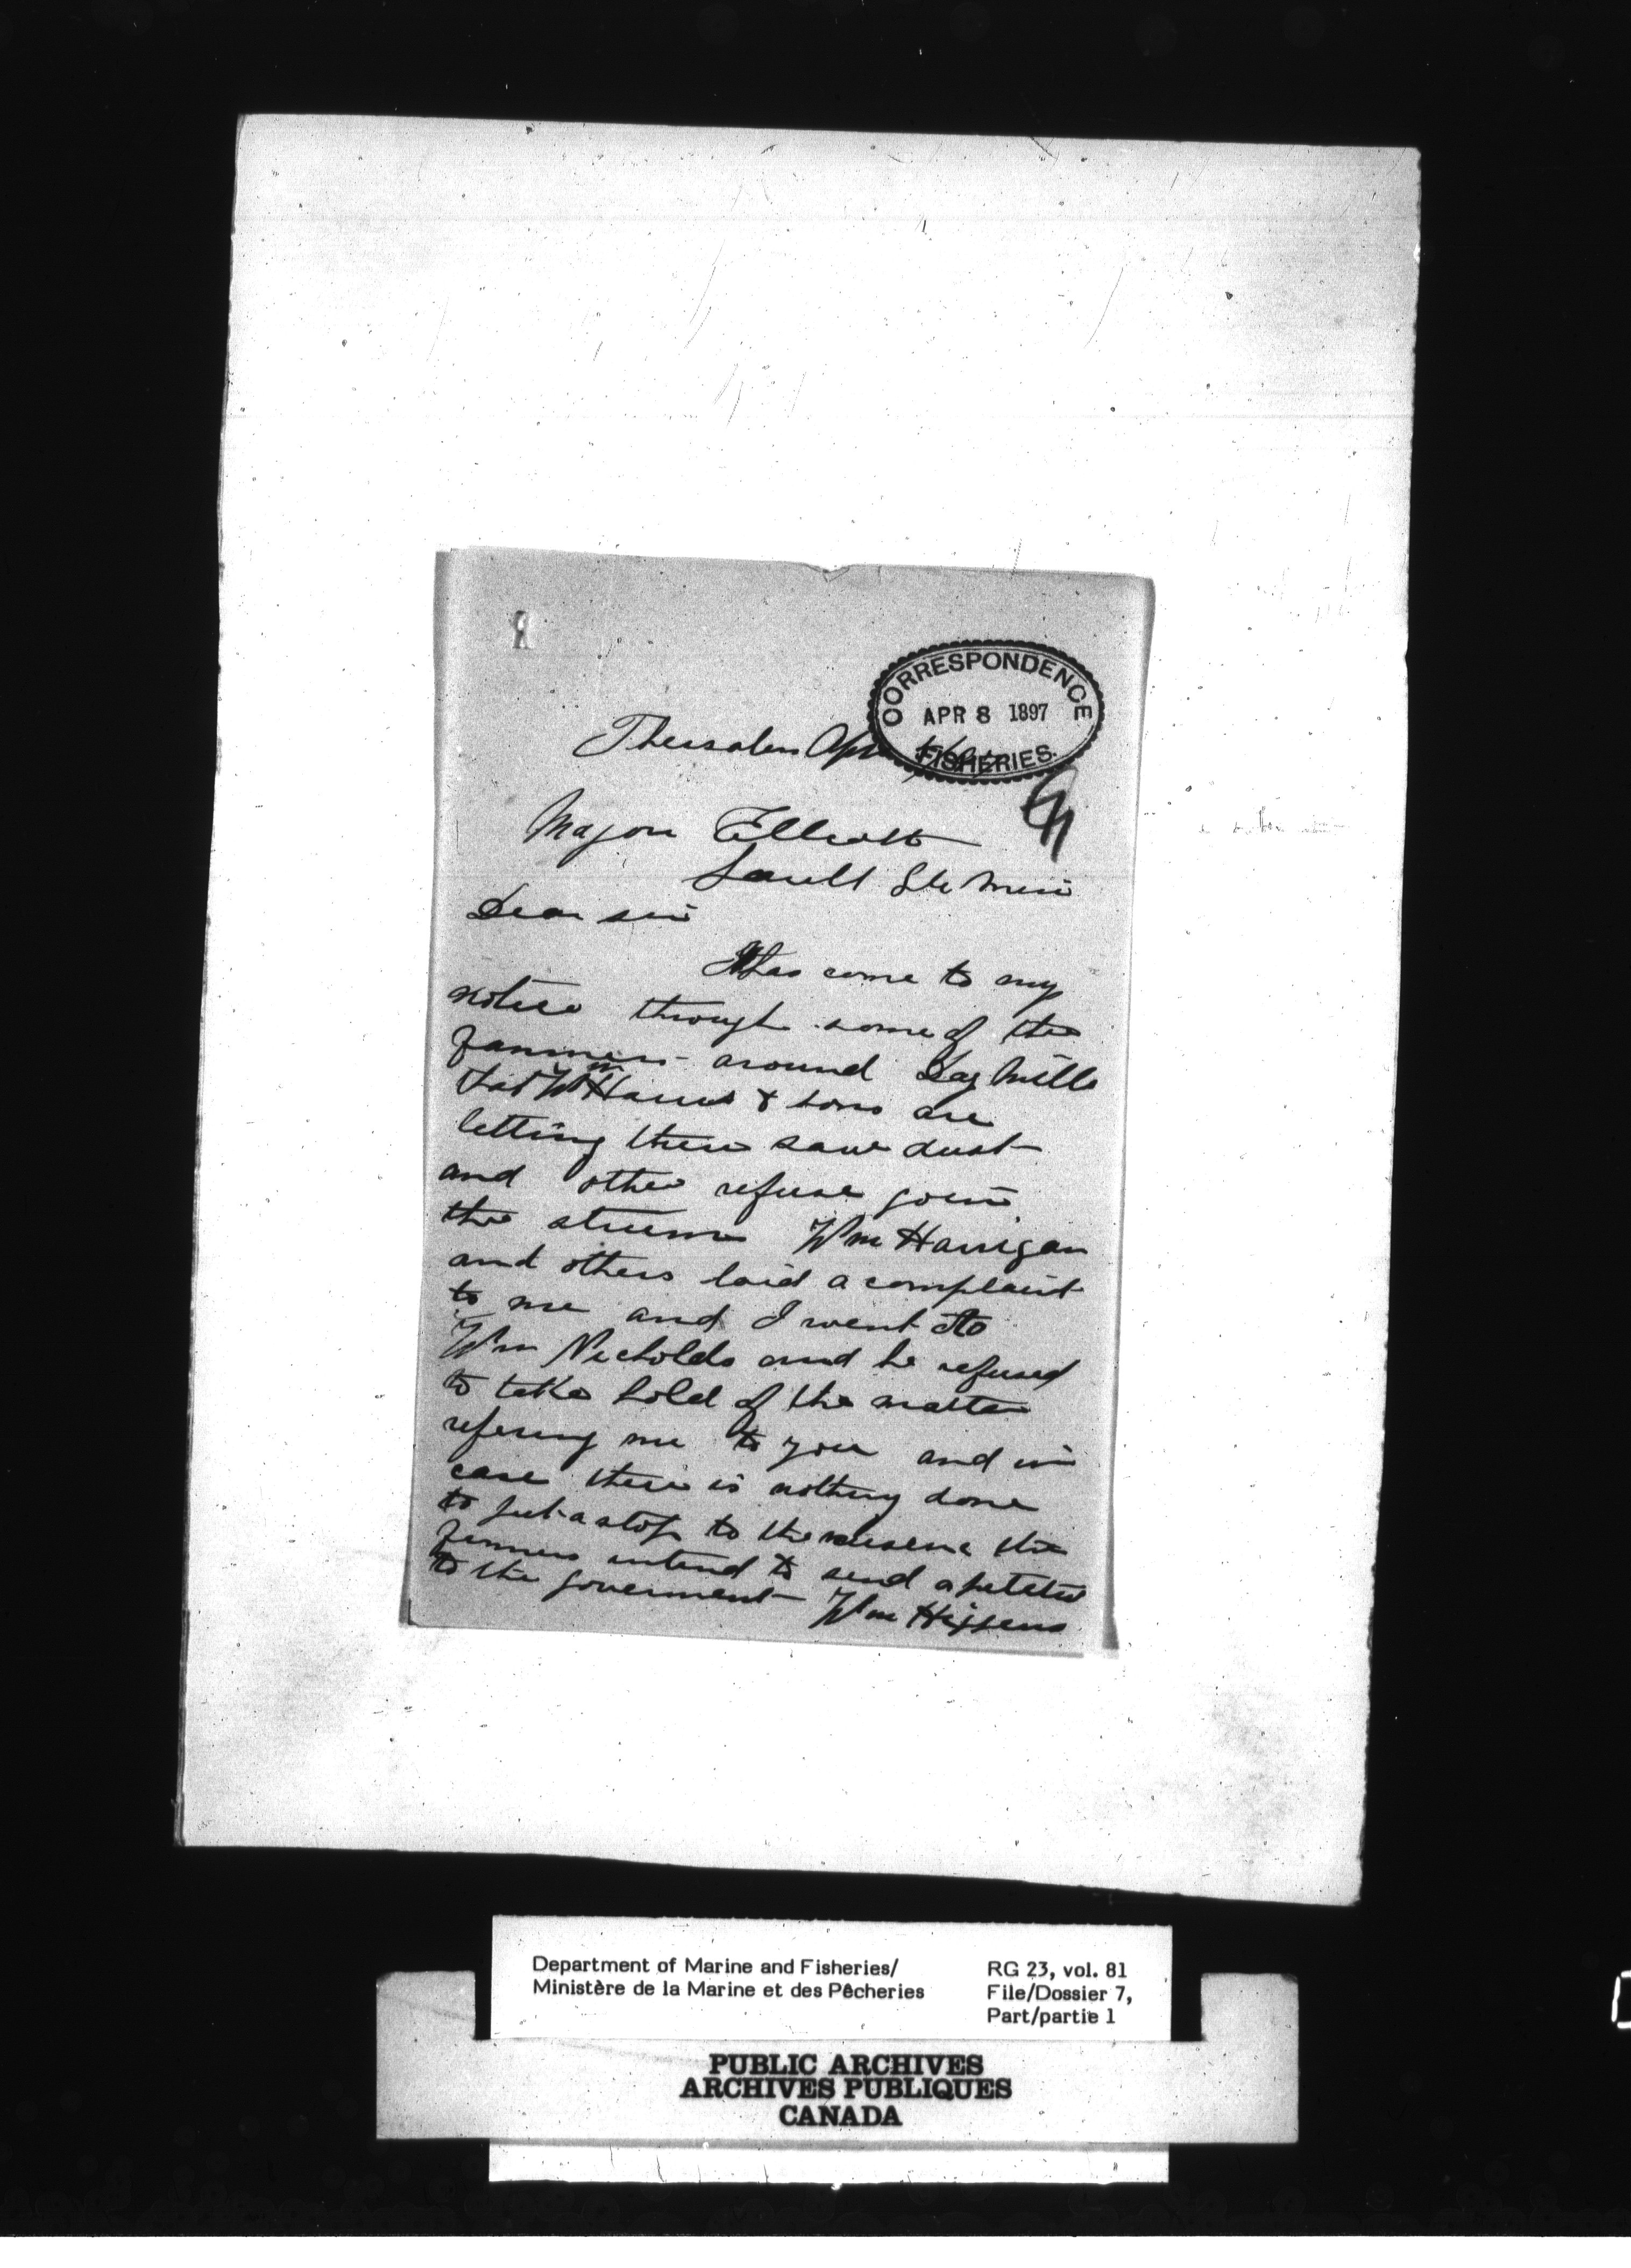 CORRESPONDENCE
APR 8 1897
FISHERIES.
Thessalon Apr
Major Elliott
Sault Ste Marie
Dear sir
It has come to my
notice through some of the
farmers around Day Mills
that Wm Harris & sons are
letting their saw dust
and other refuse go in
the stream Wm Harrigan
and others laid a complaint
to me and I went to
Wm Nicholds and he refused
to take hold of the matter
refering me to you and in
case their is nothing done
to put a stop to the nusence the
farmers intend to send a petetion
to the goverment Wm Higgens
Department of Marine and Fisheries/
Ministère de la Marine et des Pêcheries
RG 23, vol. 81
File/Dossier 7,
Part/partie 1
PUBLIC ARCHIVES
ARCHIVES PUBLIQUES
CANADA